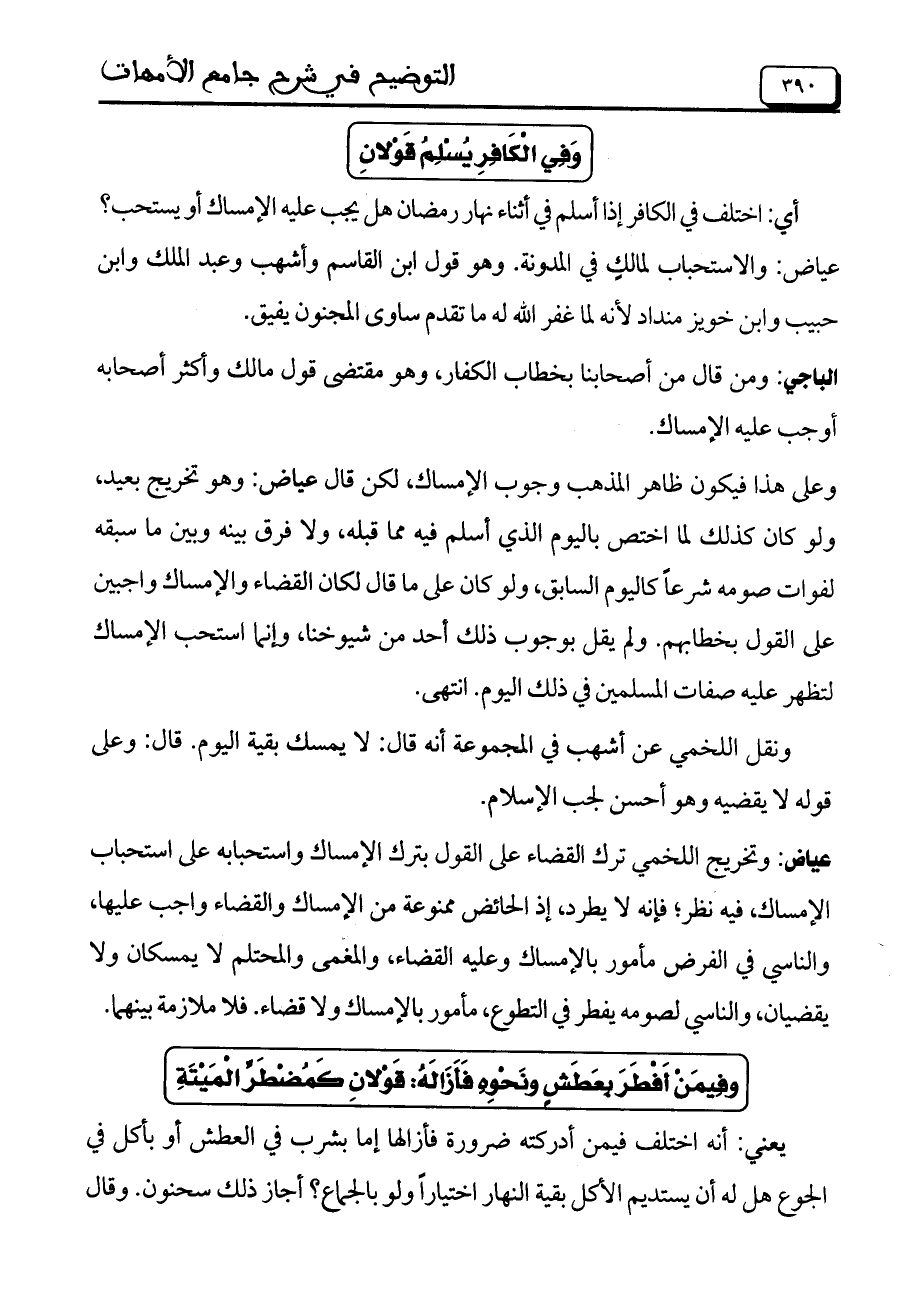 ٣٩٠
التوضيح في شرح جامع الأمهات
وَفِي الْكَافِرِ يُسْلِمُ قَوْلانِ
أي: اختلف في الكافر إذا أسلم في أثناء نهار رمضان هل يجب عليه الإمساك أو يستحب؟
عياض: والاستحباب لمالكٍ في المدونة. وهو قول ابن القاسم وأشهب وعبد الملك وابن
حبيب وابن خويز منداد لأنه لما غفر الله له ما تقدم ساوى المجنون يفيق.
الباجي: ومن قال من أصحابنا بخطاب الكفار، وهو مقتضى قول مالك وأكثر أصحابه
أوجب عليه الإمساك.
وعلى هذا فيكون ظاهر المذهب وجوب الإمساك، لكن قال عياض: وهو تخريج بعيد،
ولو كان كذلك لما اختص باليوم الذي أسلم فيه مما قبله، ولا فرق بينه وبين ما سبقه
لفوات صومه شرعاً كاليوم السابق، ولو كان على ما قال لكان القضاء والإمساك واجبين
على القول بخطابهم. ولم يقل بوجوب ذلك أحد من شيوخنا، وإنما استحب الإمساك
لتظهر عليه صفات المسلمين في ذلك اليوم. انتهى.
ونقل اللخمي عن أشهب في المجموعة أنه قال: لا يمسك بقية اليوم. قال: وعلى
قوله لا يقضيه وهو أحسن لجب الإسلام.
عياض: وتخريج اللخمي ترك القضاء على القول بترك الإمساك واستحبابه على استحباب
الإمساك، فيه نظر؛ فإنه لا يطرد، إذ الحائض ممنوعة من الإمساك والقضاء واجب عليها،
والناسي في الفرض مأمور بالإمساك وعليه القضاء، والمغمى والمحتلم لا يمسكان ولا
يقضيان، والناسي لصومه يفطر في التطوع، مأمور بالإمساك ولا قضاء. فلا ملازمة بينهما.
وفِيمَنْ أَفْطَرَ بِعَطَشٍ ونَحْوِهِ فَأَزَالَهُ: قَوْلانِ كَمُضْطَرِّ الْمَيْتَةِ
يعني: أنه اختلف فيمن أدركته ضرورة فأزالها إما بشرب في العطش أو بأكل في
الجوع هل له أن يستديم الأكل بقية النهار اختياراً ولو بالجماع؟ أجاز ذلك سحنون. وقال